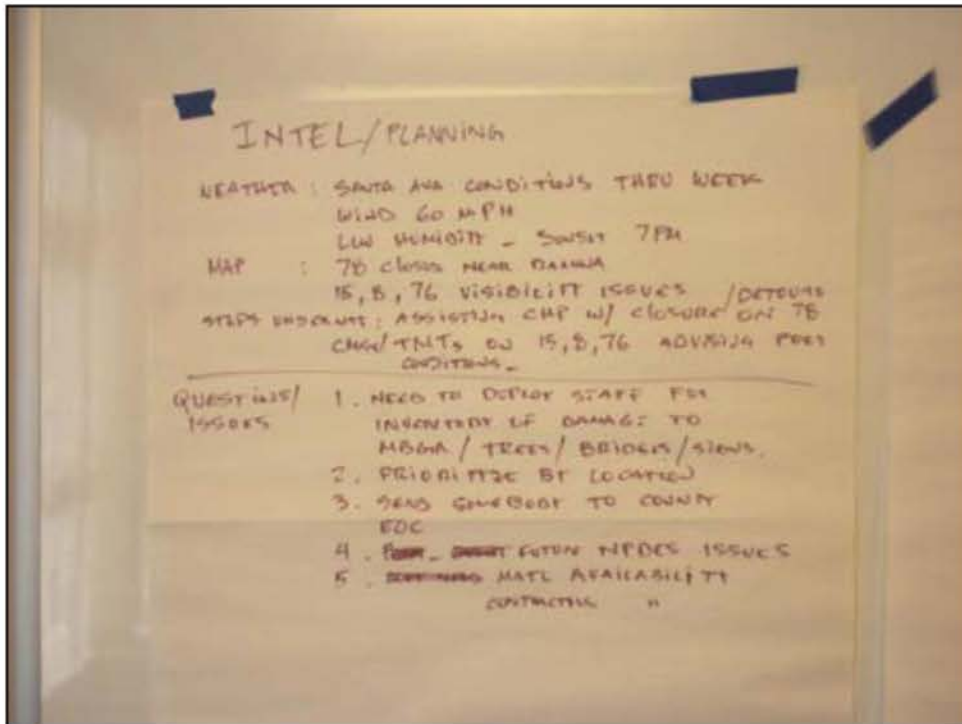 INTEL/PLANNING
WEATHER : SANTA ANA CONDITIONS THRU WEEK
WIND 60 MPH
LOW HUMIDITY - SUNSET 7PM
MAP : 78 CLOSED NEAR RAMONA
15, 8, 76 VISIBILITY ISSUES
STEPS UNDERWAY : ASSISTING CHP W/ CLOSURE/DETOURS ON 78
CMS/TMTs ON 15, 8, 76 ADVISING POOR
CONDITIONS -
QUESTIONS/ISSUES
1. NEED TO DEPLOY STAFF FOR
INVENTORY OF DAMAGE TO
MBGR / TREES / BRIDGES / SIGNS.
2. PRIORITIZE BY LOCATION
3. SEND SOMEBODY TO COUNTY
EOC
4. FUTURE NPDES ISSUES
5. MATL AVAILABILITY
CONTRACTORS "